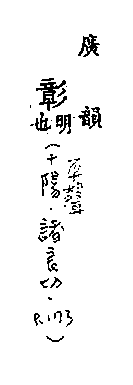 廣韻
彰 明也
(十陽・諸良切・P.173)